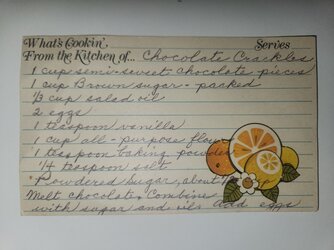 What's Cookin',
Serves
From the Kitchen of... Chocolate Crackles
1 cup semi-sweet chocolate pieces
1 cup Brown sugar - packed
1/3 cup salad oil
2 eggs
1 teaspoon vanilla
1 cup all-purpose flour
1 teaspoon baking powder
1/4 teaspoon salt
Powdered Sugar, about
Melt chocolate. Combine
with sugar and oil. Add eggs